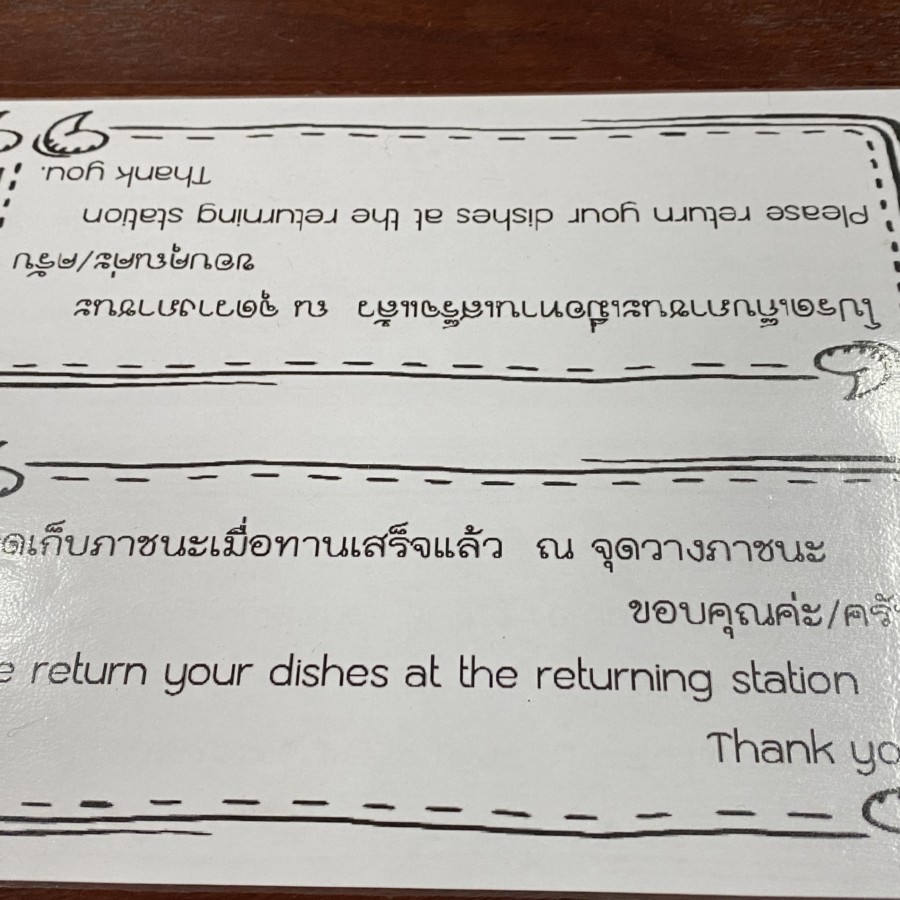 โปรดเก็บภาชนะเมื่อทานเสร็จแล้ว ณ จุดวางภาชนะ
ขอบคุณค่ะ/ครับ
Please return your dishes at the returning station
Thank you.
ดเก็บภาชนะเมื่อทานเสร็จแล้ว ณ จุดวางภาชนะ
ขอบคุณค่ะ/ครั
e return your dishes at the returning station
Thank yo